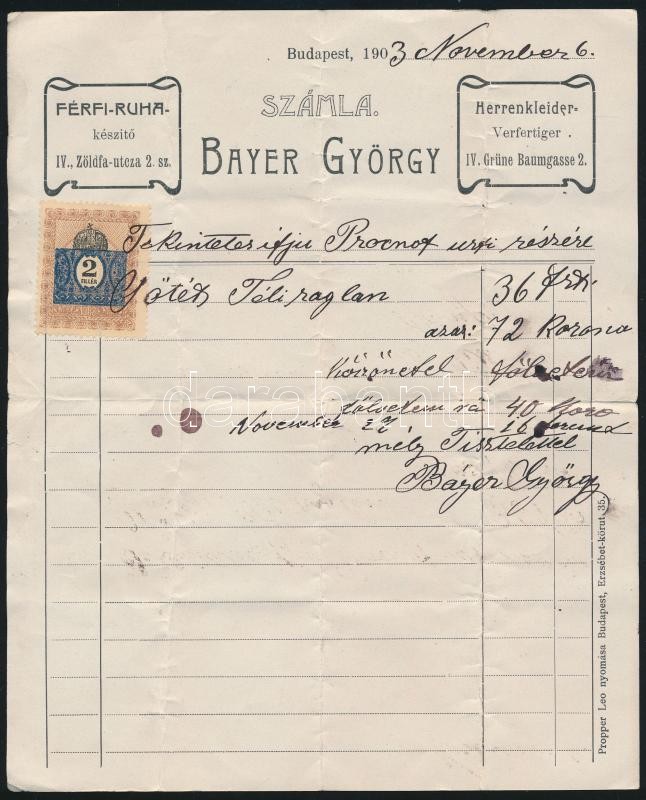 Budapest, 1903 November 6.
FÉRFI-RUHA-
készitő
IV., Zöldfa-utcza 2. sz.
SZÁMLA.
BAYER GYÖRGY
Herrenkleider-
Verfertiger
IV. Grüne Baumgasse 2.
2
FILLÉR
Tekintetes ifju urfi részére
Téli raglan 36 frt
azaz: 72 Korona
fölvettem
fölvettem rá 40 Koro
November 27 16
mély Tisztelettel
Bayer György
darabanth
Propper Leo nyomása Budapest, Erzsébet-körut 35.